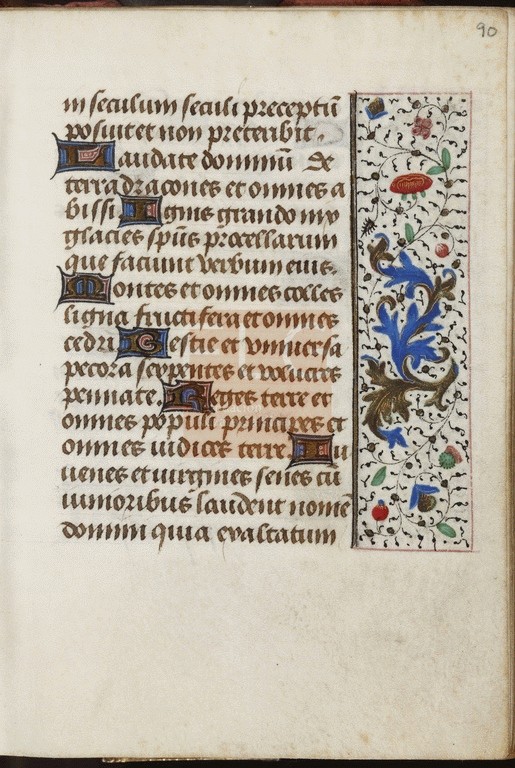 90
in seculum seculi preceptū
posuit et non preteribit.
Laudate dominū de
terra dracones et omnes a
bissi. Ignis grando nix
glacies sp̄us p̄rocellarum
que faciunt verbum eius.
Montes et omnes colles
ligna fructifera et omnes
cedri. Bestie et vniuersa
pecora serpentes et volucres
pennate. Reges terre et
omnes populi principes et
omnes iudices terre. Iu
uenes et uirgines senes cū
iunioribus laudent nomē
domini quia exaltatum